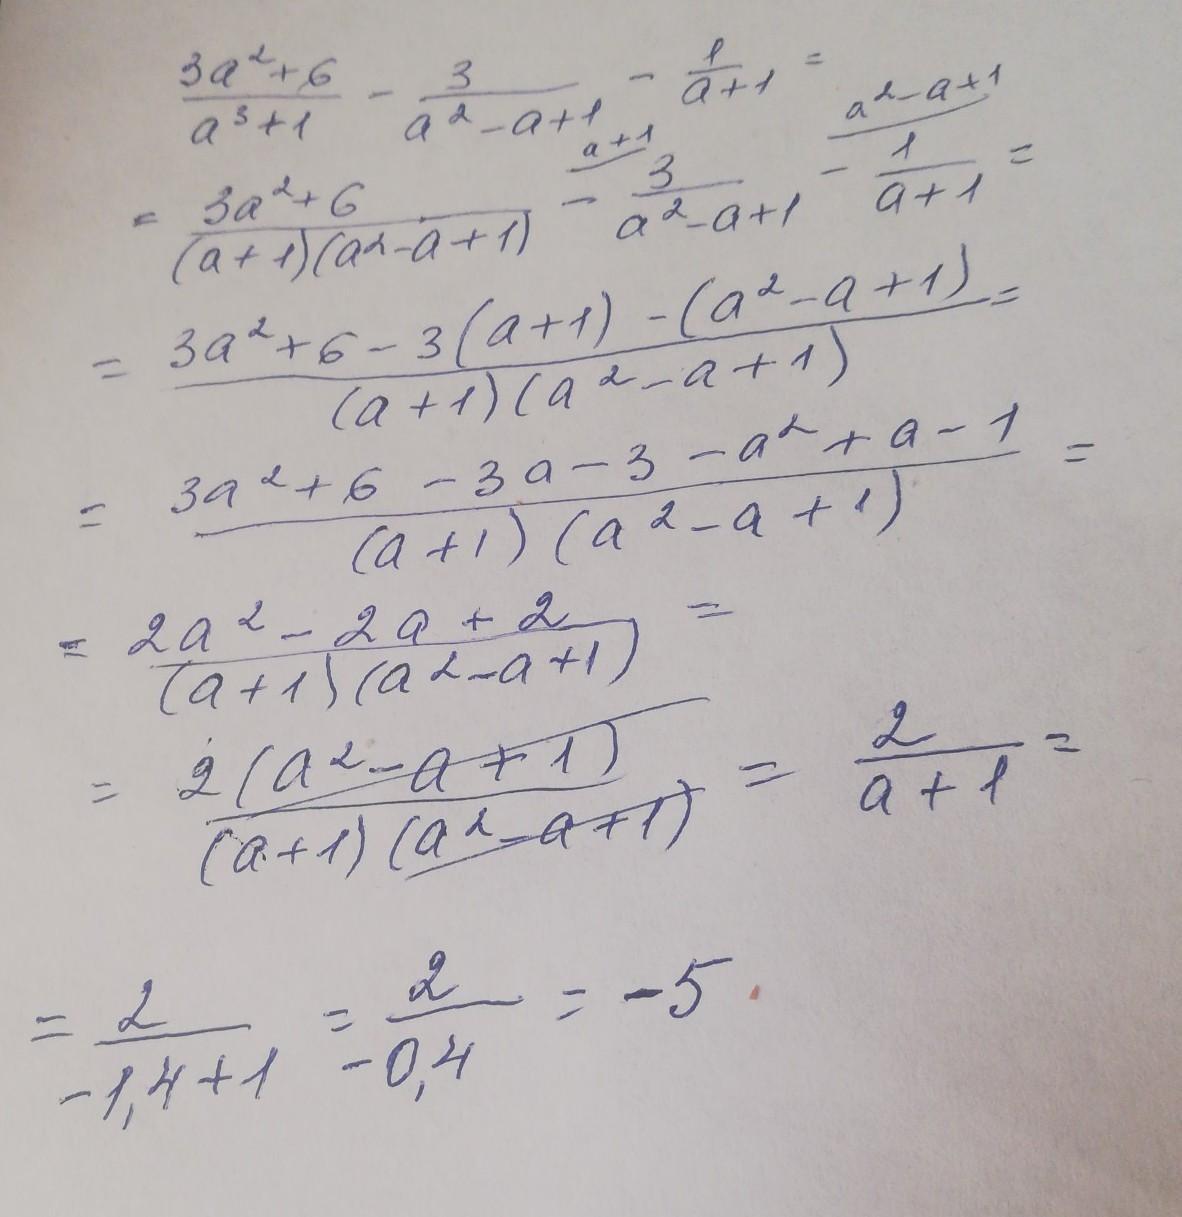 (3a²+6)/(a³+1) - 3/(a²-a+1) - 1/(a+1) =
= (3a²+6)/((a+1)(a²-a+1)) - a+1 3/(a²-a+1) - a²-a+1 1/(a+1) =
= (3a²+6-3(a+1)-(a²-a+1))/((a+1)(a²-a+1)) =
= (3a²+6-3a-3-a²+a-1)/((a+1)(a²-a+1)) =
= (2a²-2a+2)/((a+1)(a²-a+1)) =
= 2(a²-a+1)/((a+1)(a²-a+1)) = 2/(a+1) =
= 2/(-1,4+1) = 2/(-0,4) = -5